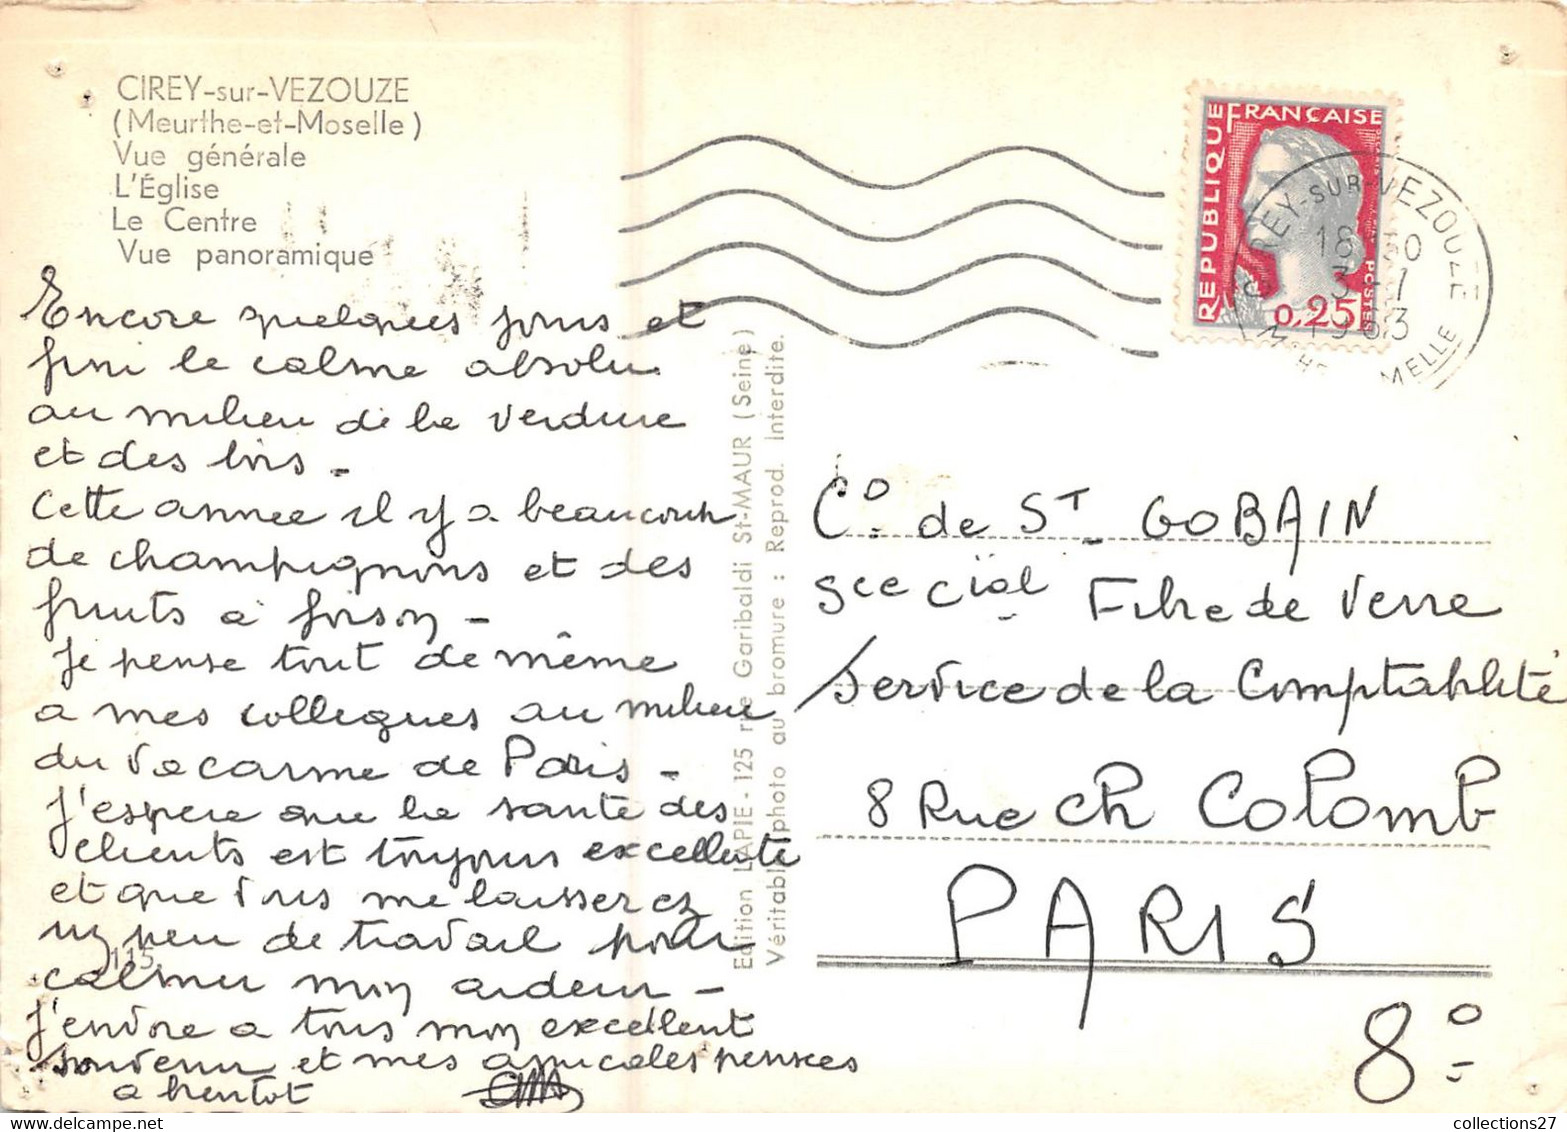 CIREY-sur-VEZOUZE
(Meurthe-et-Moselle)
Vue générale
L'Église
Le Centre
Vue panoramique
Encore quelques jours et
fini le calme absolu
au milieu de la verdure
et des bois.
Cette année il y a beaucoup
de champignons et des
fruits à foison -
Je pense tout de même
a mes collegues au milieu
du vacarme de Paris -
J'espere que la santé des
clients est toujours excellente
et que vous me laisserez
un peu de travail pour
calmer mon ardeur -
J'envoie a tous mon excellent
souvenir et mes amicales pensées
a bientot
115
Edition LAPIE - 125 rue Garibaldi St-MAUR (Seine)
Véritable photo au bromure : Reprod. Interdite.
REPUBLIQUE FRANÇAISE
POSTES
0,25
CIREY-SUR-VEZOUZE
18 30
3 - 7
1963
MELLE
C° de ST GOBAIN
Sce cial Fibre de Verre
Service de la Comptabilité
8 Rue Ch Colomb
PARIS
8°
collections27